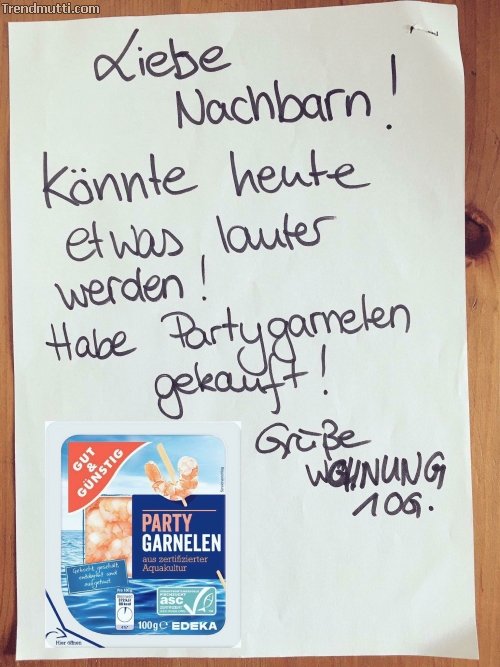 Trendmutti.com
Liebe
Nachbarn!
Könnte heute
etwas lauter
werden!
Habe Partygarnelen
gekauft!
Grüße
WOHNUNG
1OG.
GUT
&
GÜNSTIG
PARTY
GARNELEN
aus zertifizierter
Aquakultur
Gekocht, geschält
entdarmt und
aufgetaut
Pro 100g
asc
100g e EDEKA
Hier öffnen